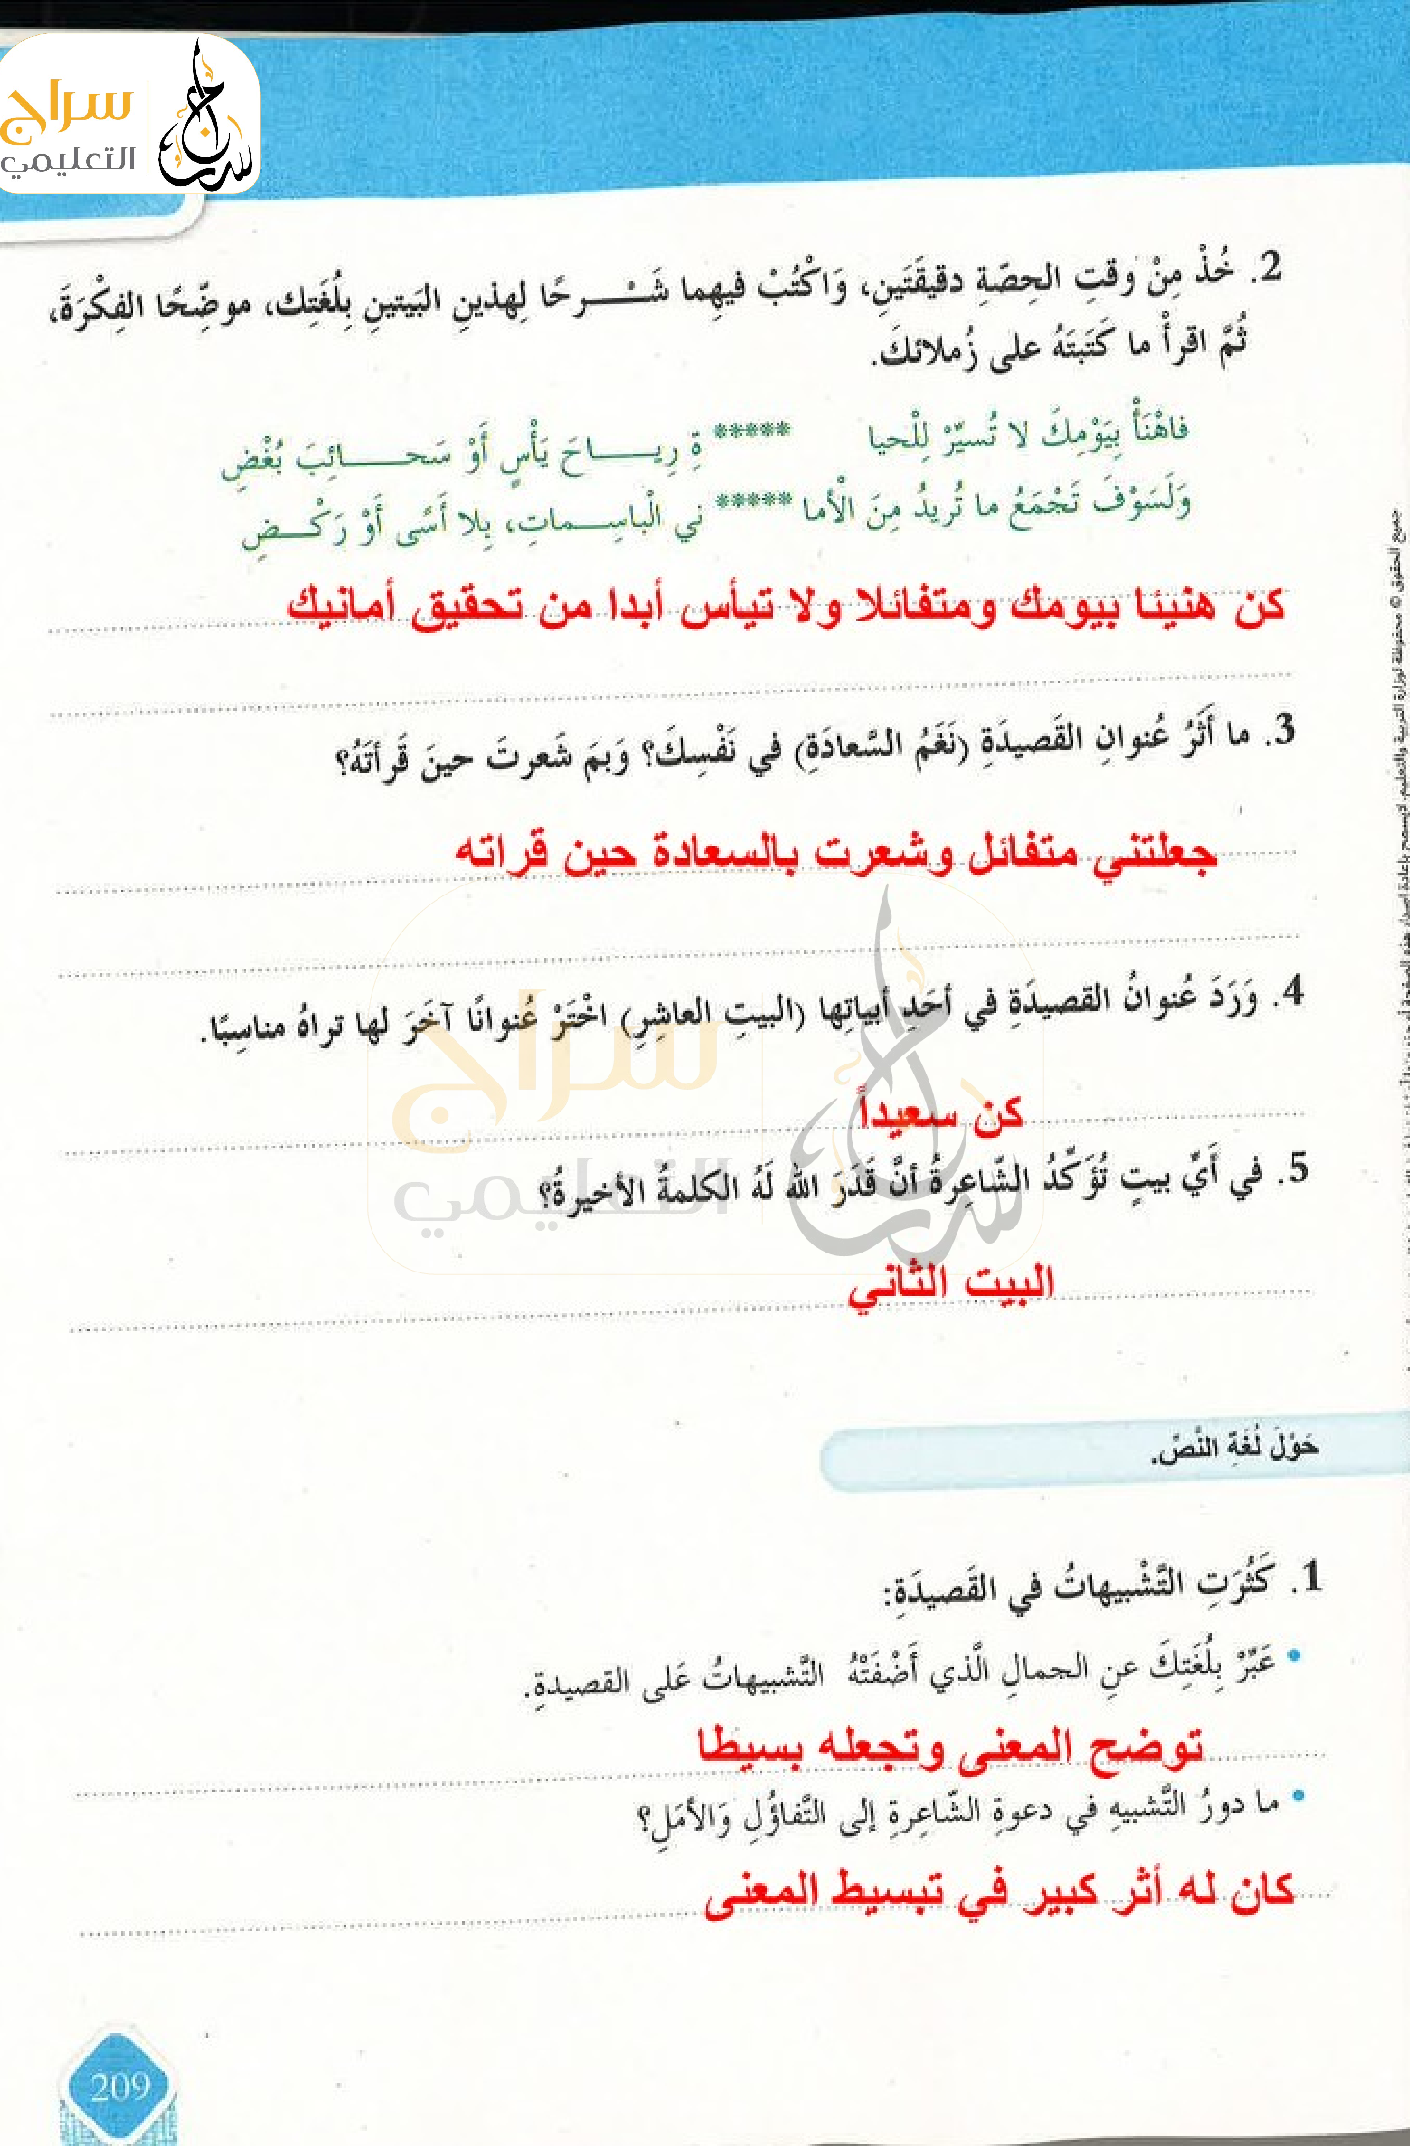 سراج
التعليمي
2. خُذْ مِنْ وقتِ الحِصّةِ دقيقَتَينِ، وَاكْتُبْ فيهِما شَـــرحًا لِهذينِ البَيتينِ بِلُغَتِك، موضِّحًا الفِكْرَةَ،
ثُمَّ اقرأْ ما كَتَبتَهُ على زُملائكَ.
فاهْنَأْ بِيَوْمِكَ لا تُسيِّرْ لِلْحيا ***** ةِ رِيـــاحَ يَأْسٍ أَوْ سَحـــائِبَ بُغْضِ
وَلَسَوْفَ تَجْمَعُ ما تُرِيدُ مِنَ الْأَما ***** ني الْباسِـــماتِ، بِلا أَسًى أَوْ رَكْـــضِ
كن هنيئا بيومك ومتفائلا ولا تيأس أبدا من تحقيق أمانيك
3. ما أَثَرُ عُنوانِ القَصيدَةِ (نَغَمُ السَّعادَةِ) في نَفْسِكَ؟ وَبِمَ شَعرتَ حينَ قَرأتَهُ؟
جعلتني متفائل وشعرت بالسعادة حين قراته
سراج
التعليمي
4. وَرَدَ عُنوانُ القصيدَةِ في أحَدِ أبياتِها (البيتِ العاشِرِ) اخْتَرْ عُنوانًا آخَرَ لها تراهُ مناسِبًا.
كن سعيداً
5. في أَيِّ بيتٍ تُؤَكِّدُ الشّاعِرةُ أنَّ قَدَرَ اللهِ لَهُ الكلمةُ الأخيرةُ؟
البيت الثاني
حَوْلَ لُغَةِ النَّصِّ.
1. كَثُرَتِ التَّشْبيهاتُ في القَصيدَةِ:
• عَبِّرْ بِلُغَتِكَ عنِ الجمالِ الَّذي أَضْفَتْهُ التَّشبيهاتُ عَلى القصيدةِ.
توضح المعنى وتجعله بسيطا
• ما دورُ التَّشبيهِ في دعوةِ الشّاعِرةِ إلى التَّفاؤُلِ وَالأمَلِ؟
كان له أثر كبير في تبسيط المعنى
209